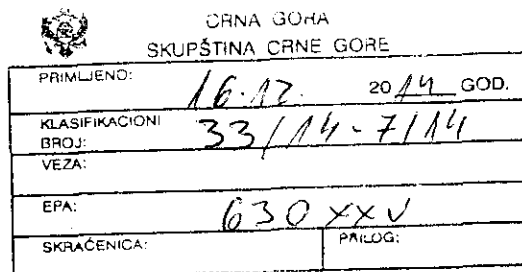 CRNA GORA
SKUPŠTINA CRNE GORE
PRIMLJENO: 16.12. 2014 GOD.
KLASIFIKACIONI BROJ: 33/14-7/14
VEZA:
EPA: 630 XXV
SKRAĆENICA: PRILOG: